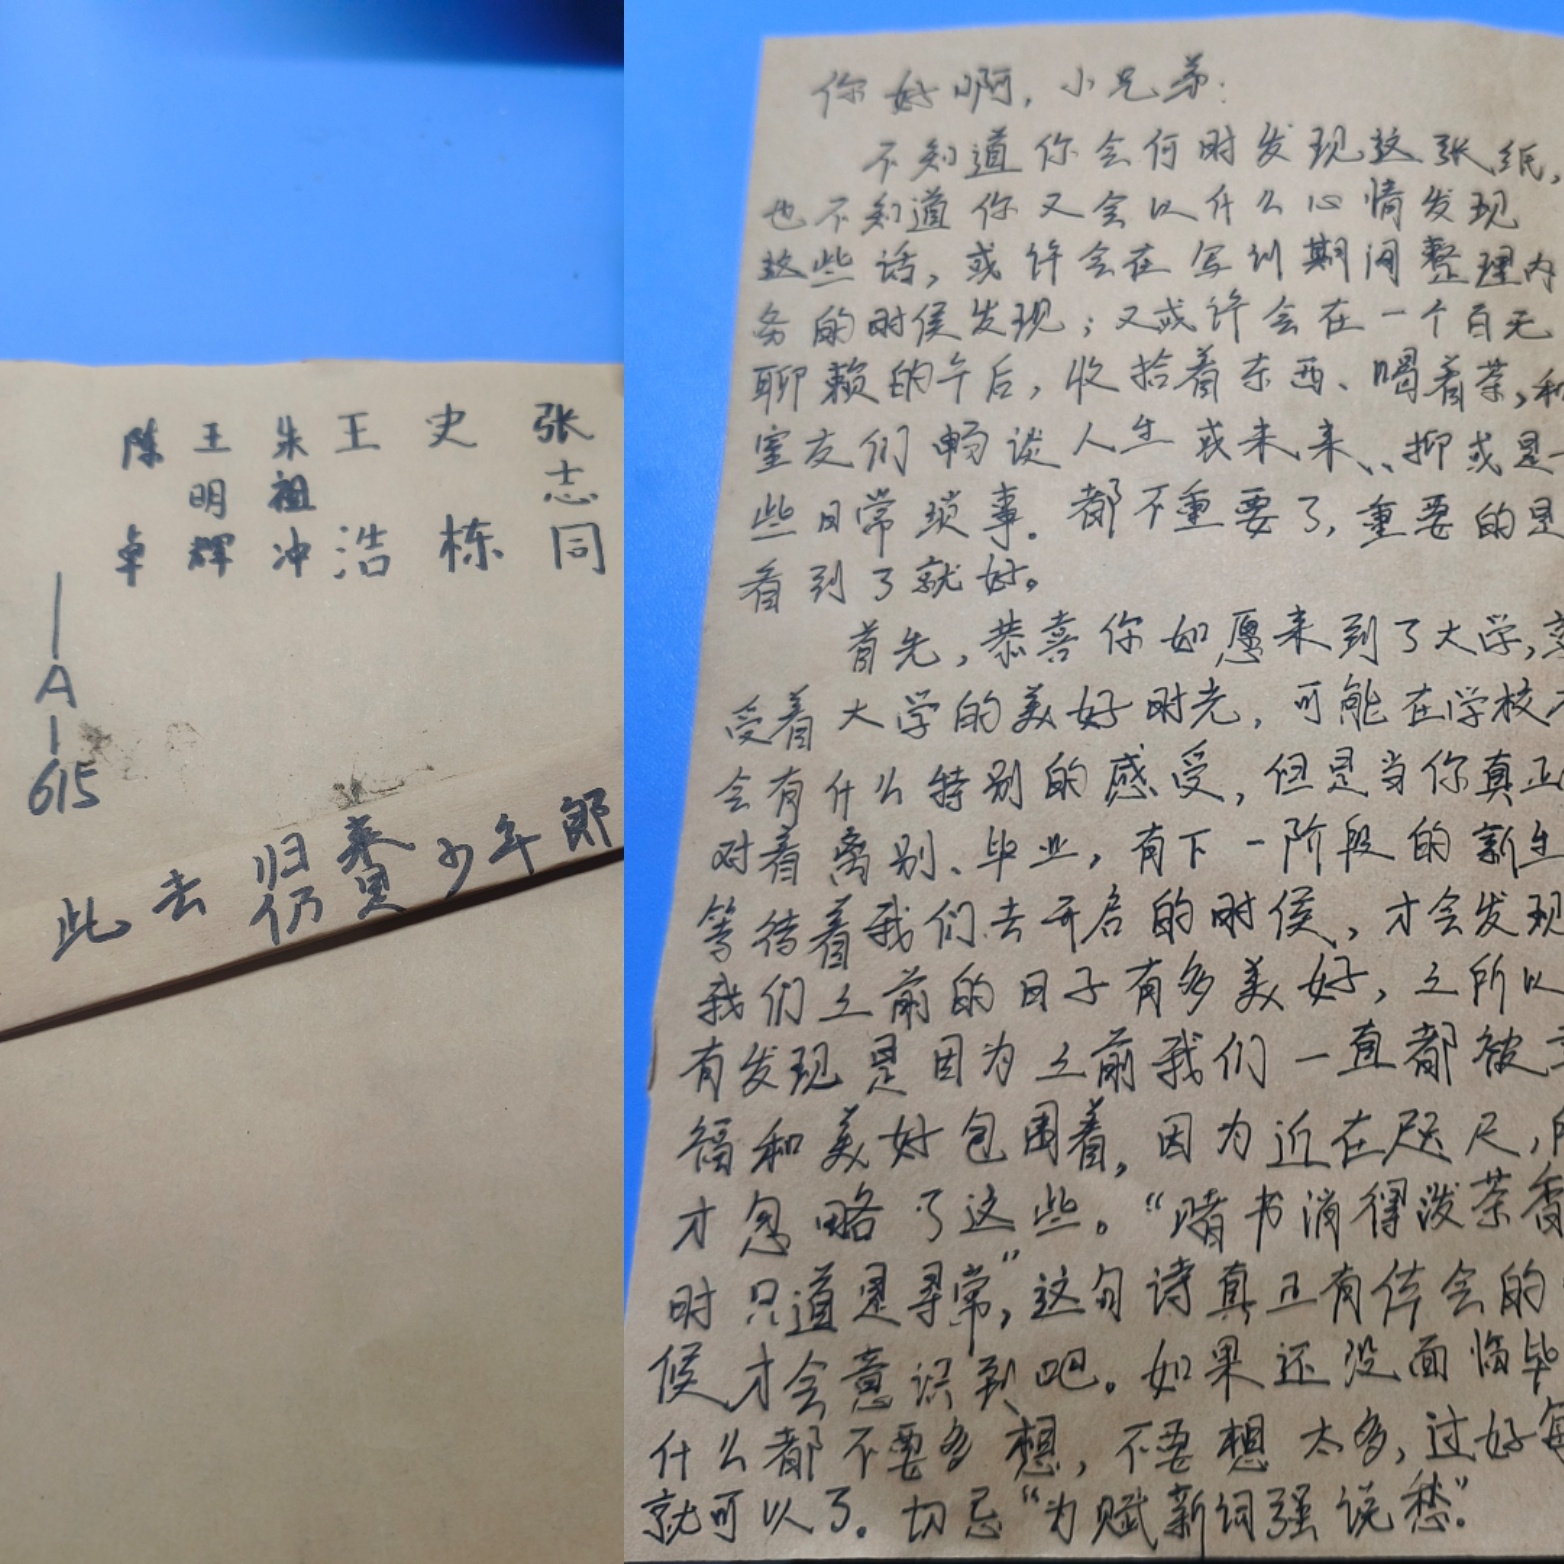 陈卓
王明辉
朱祖冲
王浩
史栋
张志同
—A—615
此去归来仍是少年郎
你好啊,小兄弟:
不知道你会何时发现这张纸,
也不知道你又会以什么心情发现
这些话,或许会在军训期间整理内
务的时侯发现;又或许会在一个百无
聊赖的午后,收拾着东西、喝着茶,和
室友们畅谈人生或未来、抑或是一
些日常琐事。都不重要了,重要的是
看到了就好。
首先,恭喜你如愿来到了大学,享
受着大学的美好时光,可能在学校不
会有什么特别的感受,但是当你真正
对着离别、毕业,有下一阶段的新生
等待着我们去开启的时侯,才会发现
我们之前的日子有多美好,之所以
有发现是因为之前我们一直都被幸
福和美好包围着,因为近在咫尺,所
才忽略了这些。“赌书消得泼茶香
时只道是寻常”,这句诗真正有体会的
候才会意识到吧。如果还没面临毕
什么都不要多想,不要想太多,过好每
就可以了。切忌“为赋新词强说愁”.